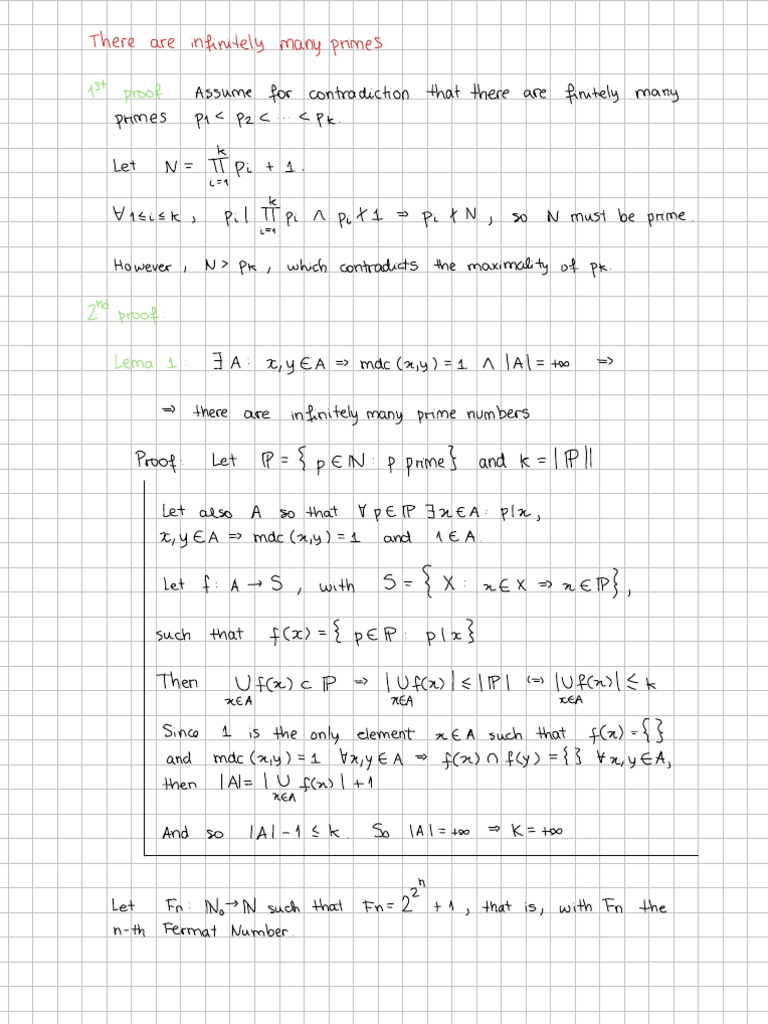 There are infinitely many primes
1st proof: Assume for contradiction that there are finitely many
primes p1 < p2 < ... < pk.
Let N = ∏_{i=1}^{k} pi + 1.
∀ 1≤i≤k, pi | ∏_{i=1}^{k} pi ∧ pi ∤ 1 ⇒ pi ∤ N, so N must be prime.
However, N > pk, which contradicts the maximality of pk.
2nd proof:
Lema 1: ∃ A: x,y ∈ A ⇒ mdc(x,y) = 1 ∧ |A| = +∞ ⇒
⇒ there are infinitely many prime numbers
Proof: Let ℙ = { p ∈ ℕ: p prime} and k = |ℙ|
Let also A so that ∀ p∈ℙ ∃ x∈A: p|x,
x,y ∈ A ⇒ mdc(x,y) = 1 and 1 ∈ A.
Let f: A → S, with S = { X: x∈X ⇒ x∈ℙ},
such that f(x) = { p∈ℙ: p|x}
Then ∪_{x∈A} f(x) ⊂ ℙ ⇒ |∪_{x∈A} f(x)| ≤ |ℙ| ⇔ |∪_{x∈A} f(x)| ≤ k
Since 1 is the only element x∈A such that f(x) = {}
and mdc(x,y) = 1 ∀x,y ∈ A ⇒ f(x) ∩ f(y) = {} ∀ x,y ∈ A,
then |A| = |∪_{x∈A} f(x)| + 1
And so |A| - 1 ≤ k. So |A| = +∞ ⇒ K = +∞
Let Fn: ℕ₀ → ℕ such that Fn = 2^{2^n} + 1, that is, with Fn the
n-th Fermat Number.